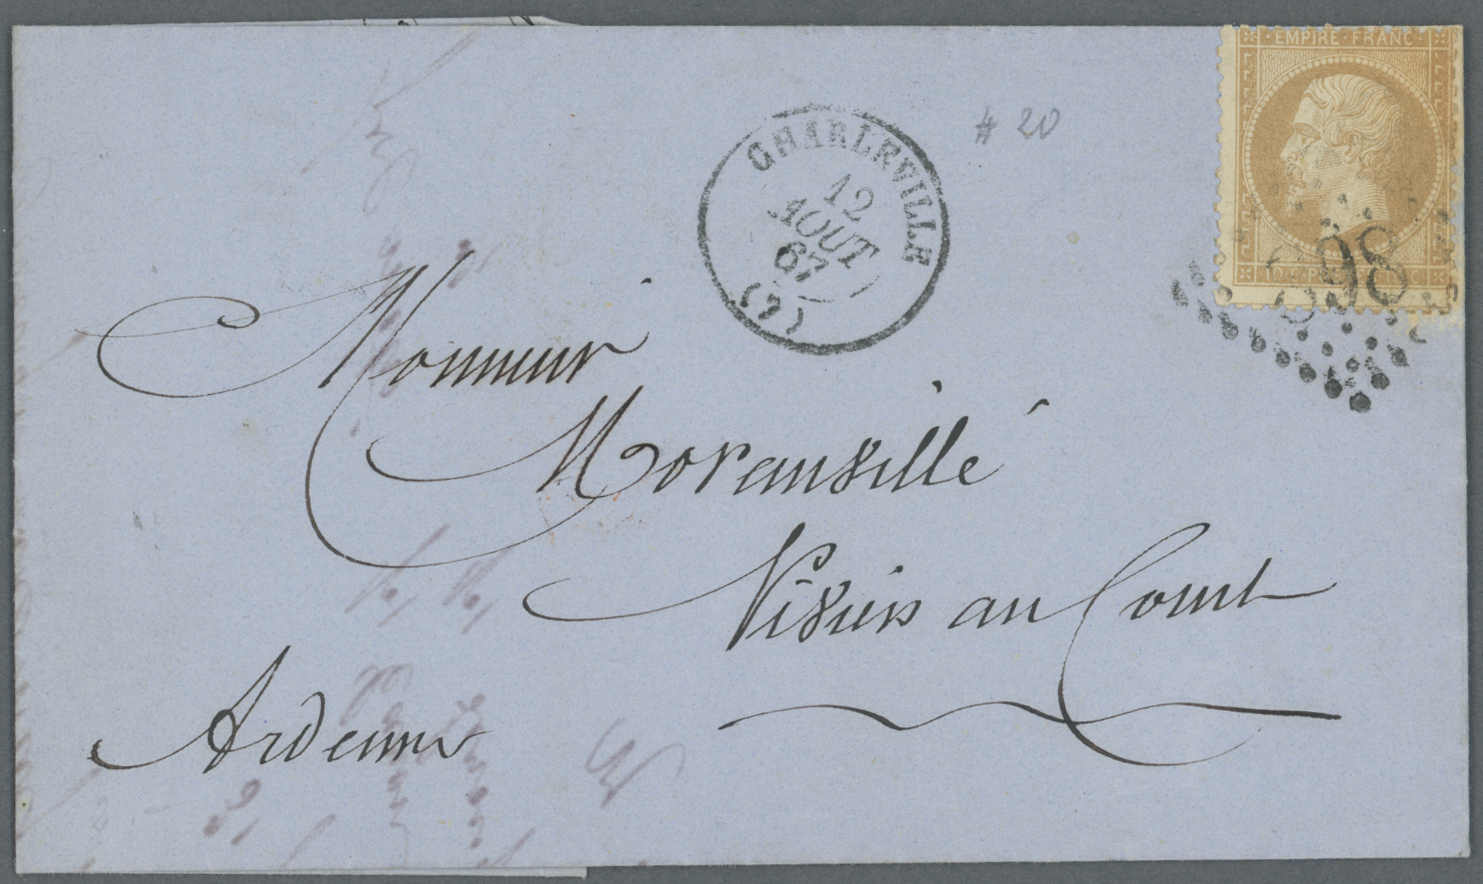 EMPIRE FRANC
# 20
CHARLEVILLE
12
AOUT
67
(7)
898
Monsieur
Moranvillé
Viviers au Court
Ardennes